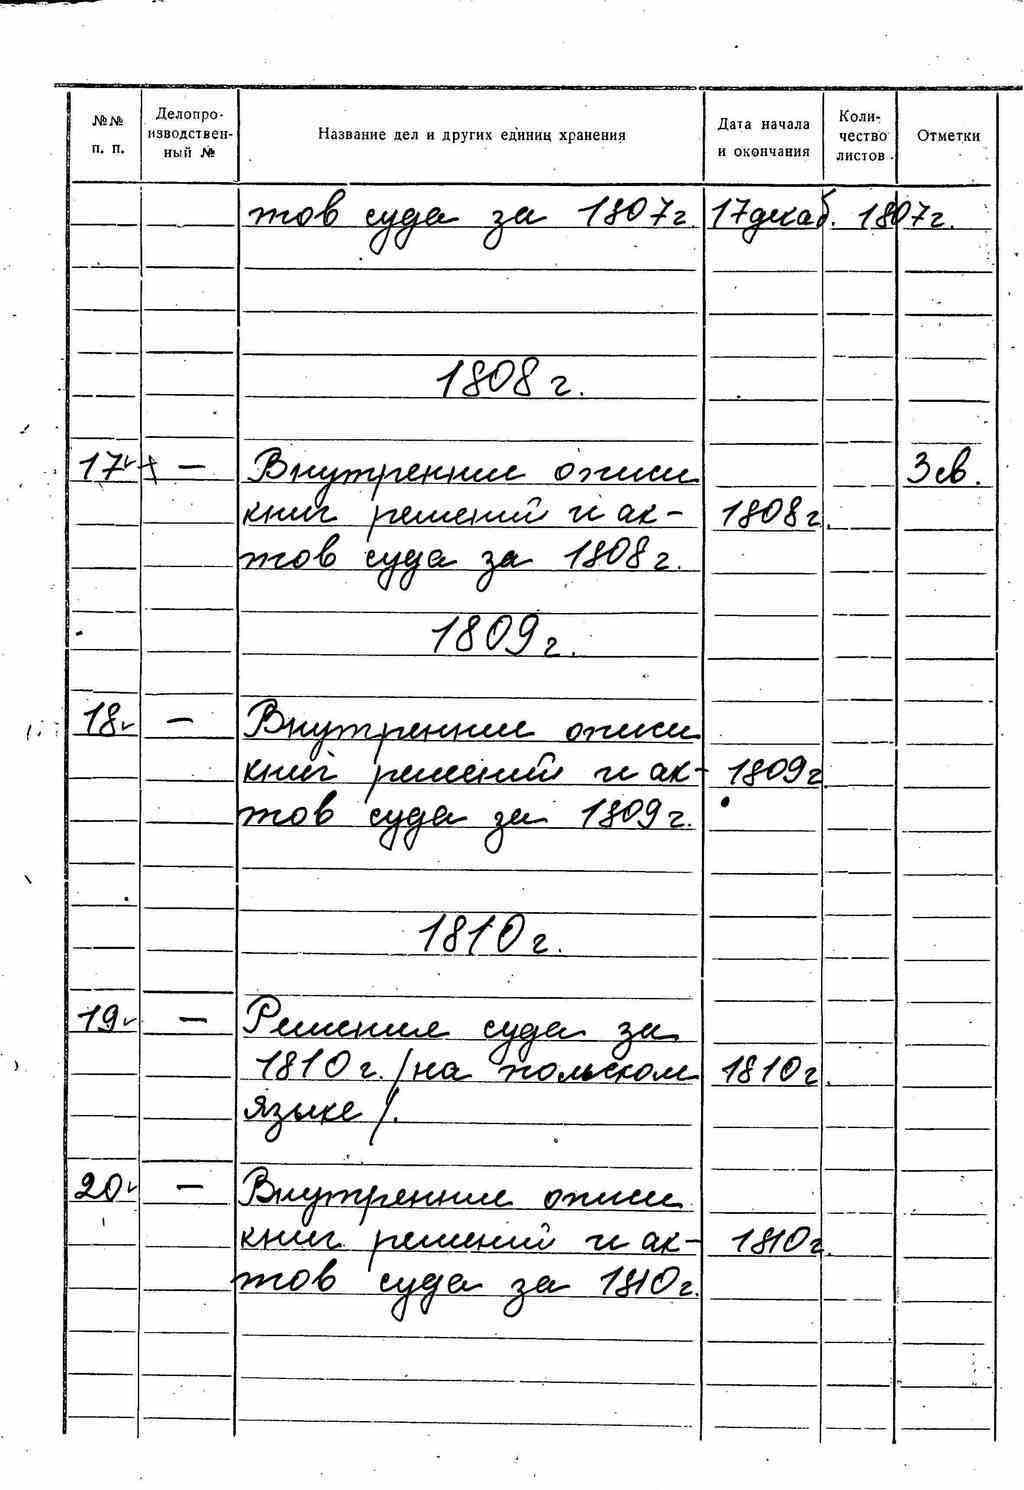 №№ п. п. Делопроизводственный № Название дел и других единиц хранения Дата начала и окончания Количество листов Отметки
тов суда за 1807г. 17 декаб. 1807г.
1808 г.
17 — Внутренние описи
книг решений и ак- 1808 г.
тов суда за 1808 г.
1809 г.
18 — Внутренние описи
книг решений и ак- 1809 г.
тов суда за 1809 г.
1810 г.
19 — Решения суда за
1810 г. /на польском 1810 г.
языке/.
20 — Внутренние описи
книг решений и ак- 1810 г.
тов суда за 1810 г.